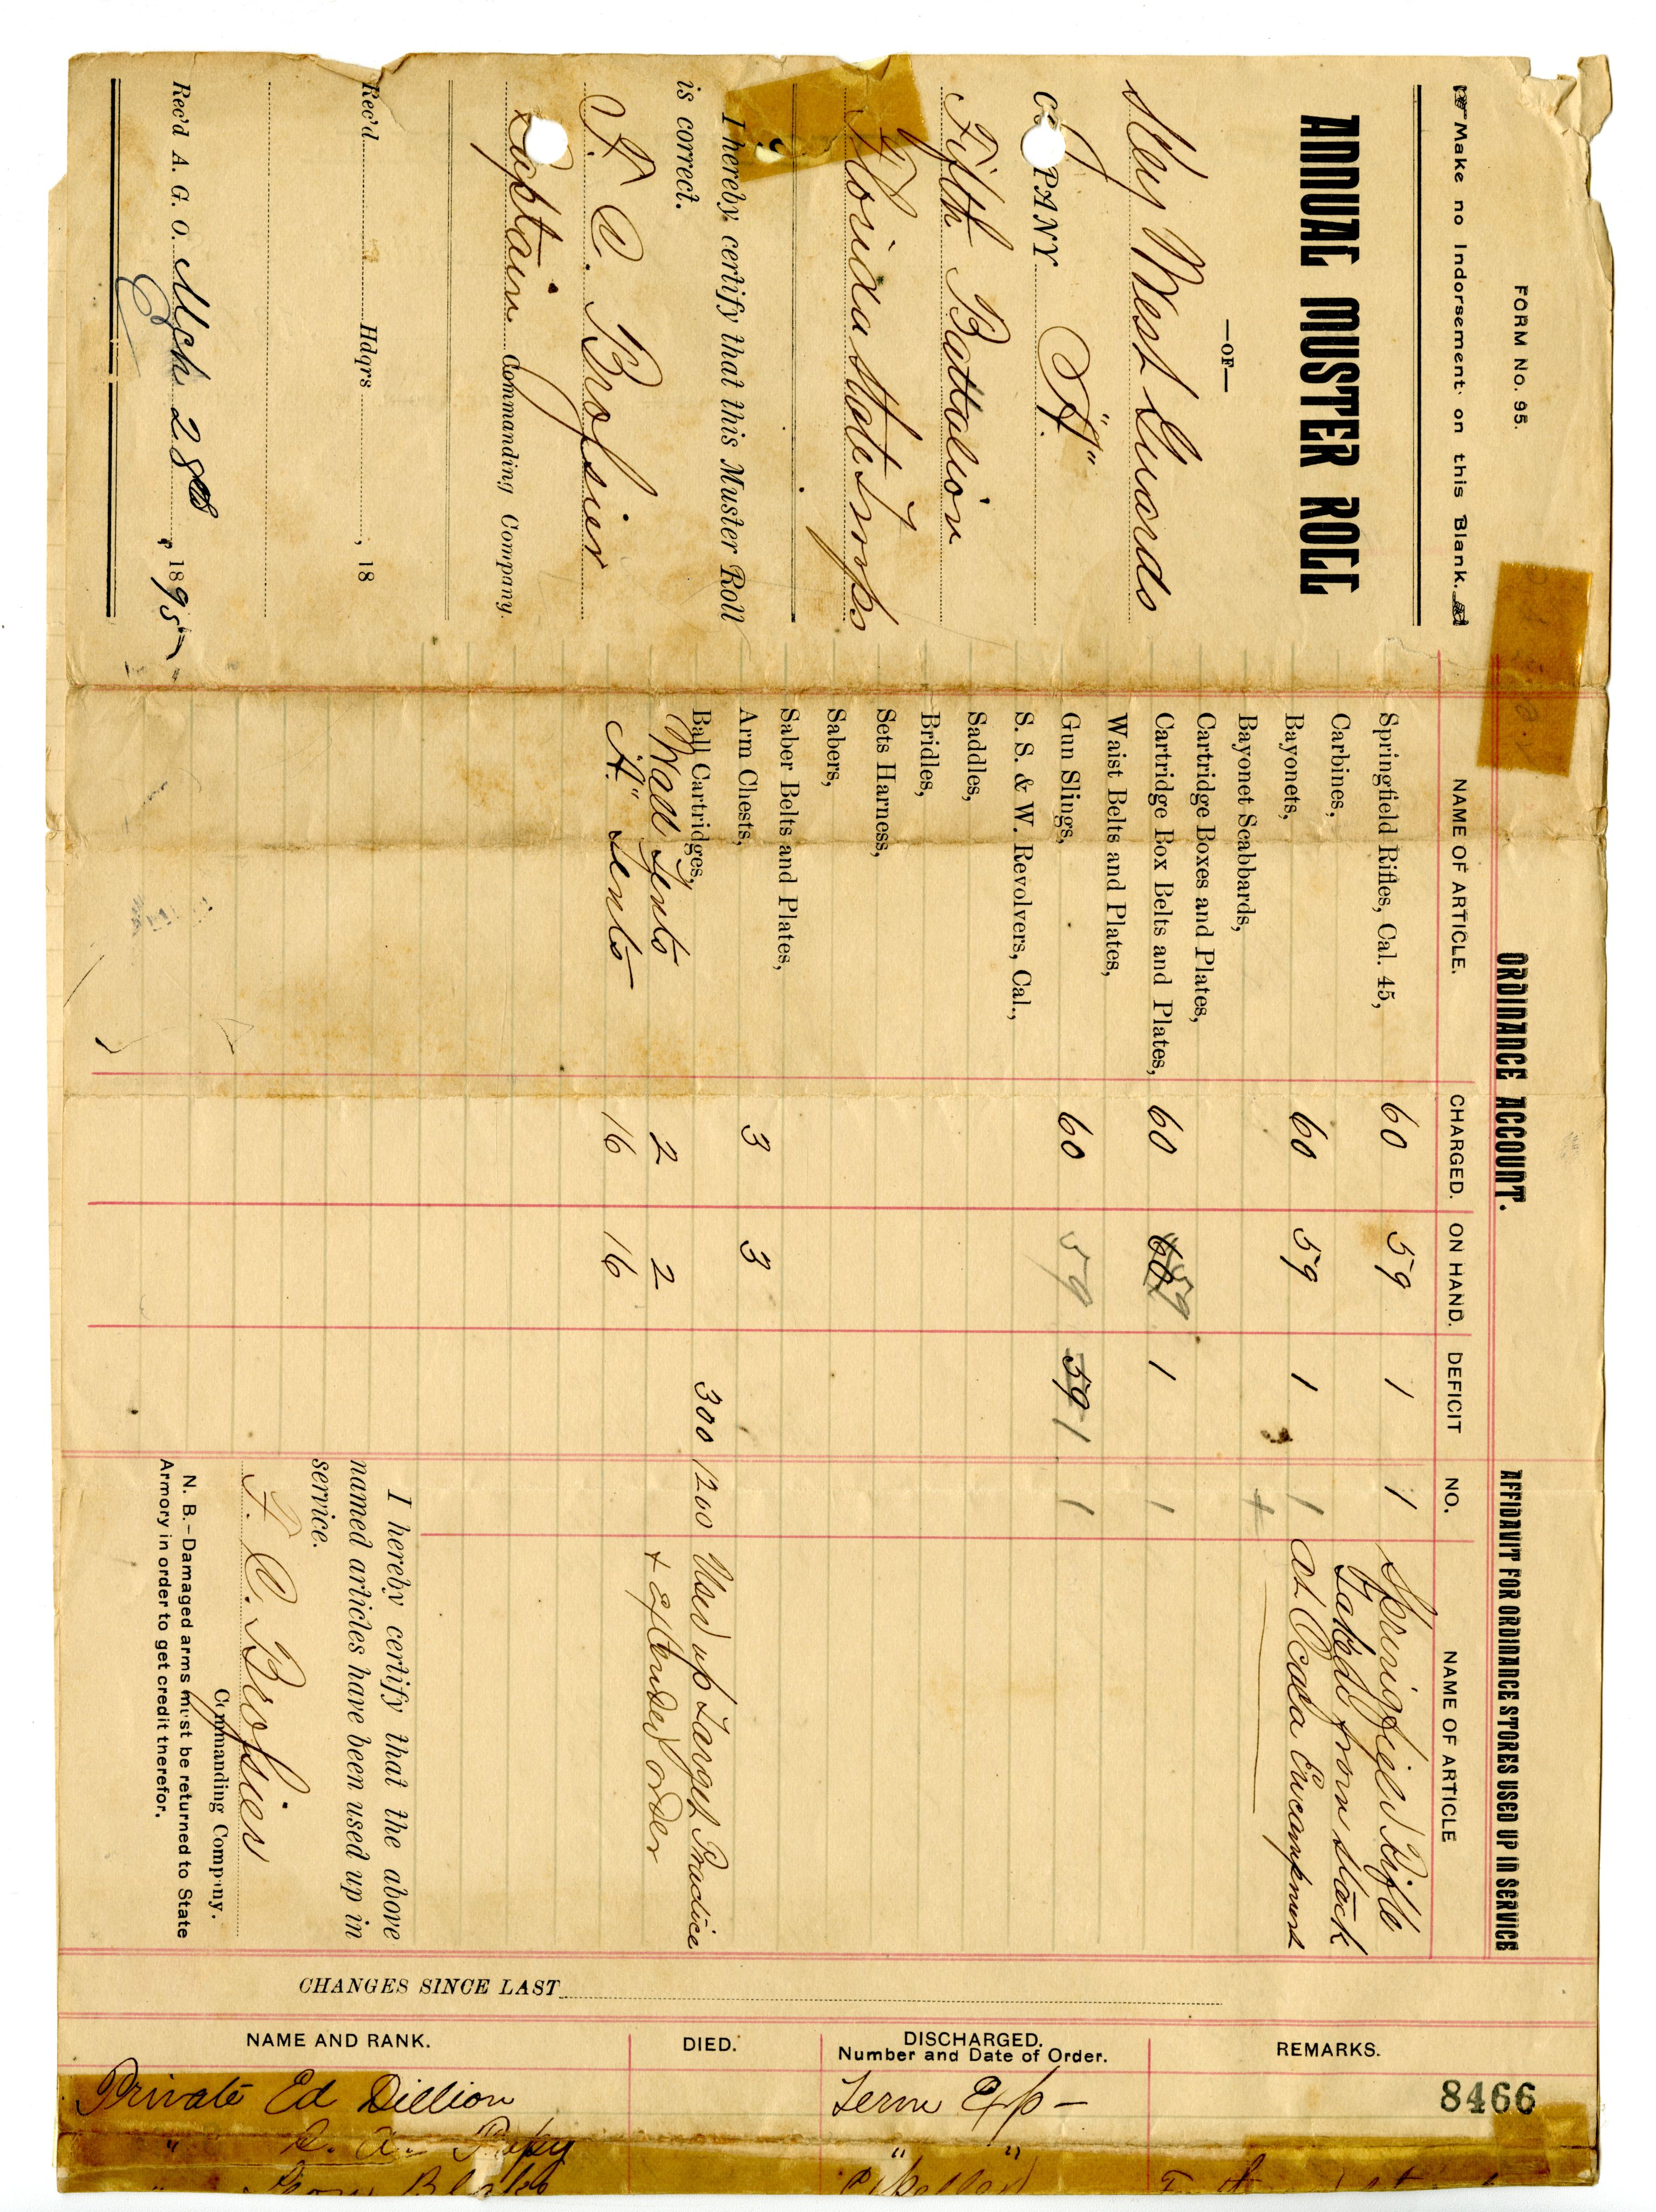 FORM No. 95.
Make no Indorsement on this Blank.
ANNUAL MUSTER ROLL
—OF—
Key West Guards
COMPANY "A"
Fifth Battalion
Florida State Troops
I hereby certify that this Muster Roll
is correct.
F. C. Brossier
Captain Commanding Company.
Rec'd Hdqrs , 18
Rec'd A. G. O. Mch 28 , 1895
ORDINANCE ACCOUNT.
NAME OF ARTICLE. CHARGED. ON HAND. DEFICIT
Springfield Rifles, Cal. 45, 60 59 1
Carbines,
Bayonets, 60 59 1
Bayonet Scabbards,
Cartridge Boxes and Plates,
Cartridge Box Belts and Plates, 60 60 59 1
Waist Belts and Plates,
Gun Slings, 60 59 59 1
S. S. & W. Revolvers, Cal.,
Saddles,
Bridles,
Sets Harness,
Sabers,
Saber Belts and Plates,
Arm Chests, 3 3
Ball Cartridges, 300
Wall Tents 2 2
"A" Tents 16 16
AFFIDAVIT FOR ORDINANCE STORES USED UP IN SERVICE
NO. NAME OF ARTICLE
1 Springfield Rifle
Taked from stack
1 at Ocala Encampment
1
1
1200 Used up Target Practice
+ Extended order
I hereby certify that the above
named articles have been used up in
service.
F. C. Brossier
Commanding Company.
N. B.—Damaged arms must be returned to State
Armory in order to get credit therefor.
CHANGES SINCE LAST
NAME AND RANK. DIED. DISCHARGED. Number and Date of Order. REMARKS.
8466
Private Ed Dillion Term Exp—
" " "